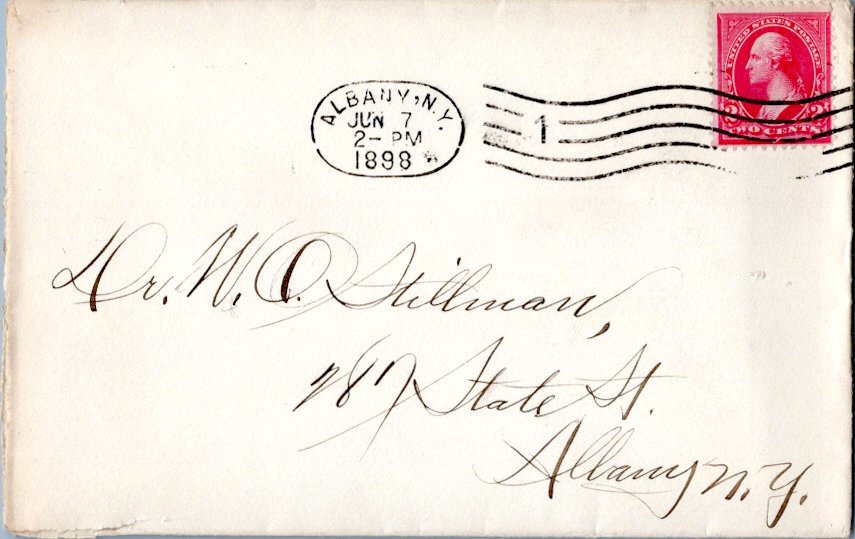 UNITED STATES POSTAGE
2 2
TWO CENTS
ALBANY, N.Y.
JUN 7
2- PM
1898
1
Dr. W. O. Stillman,
287 State St.
Albany N.Y.